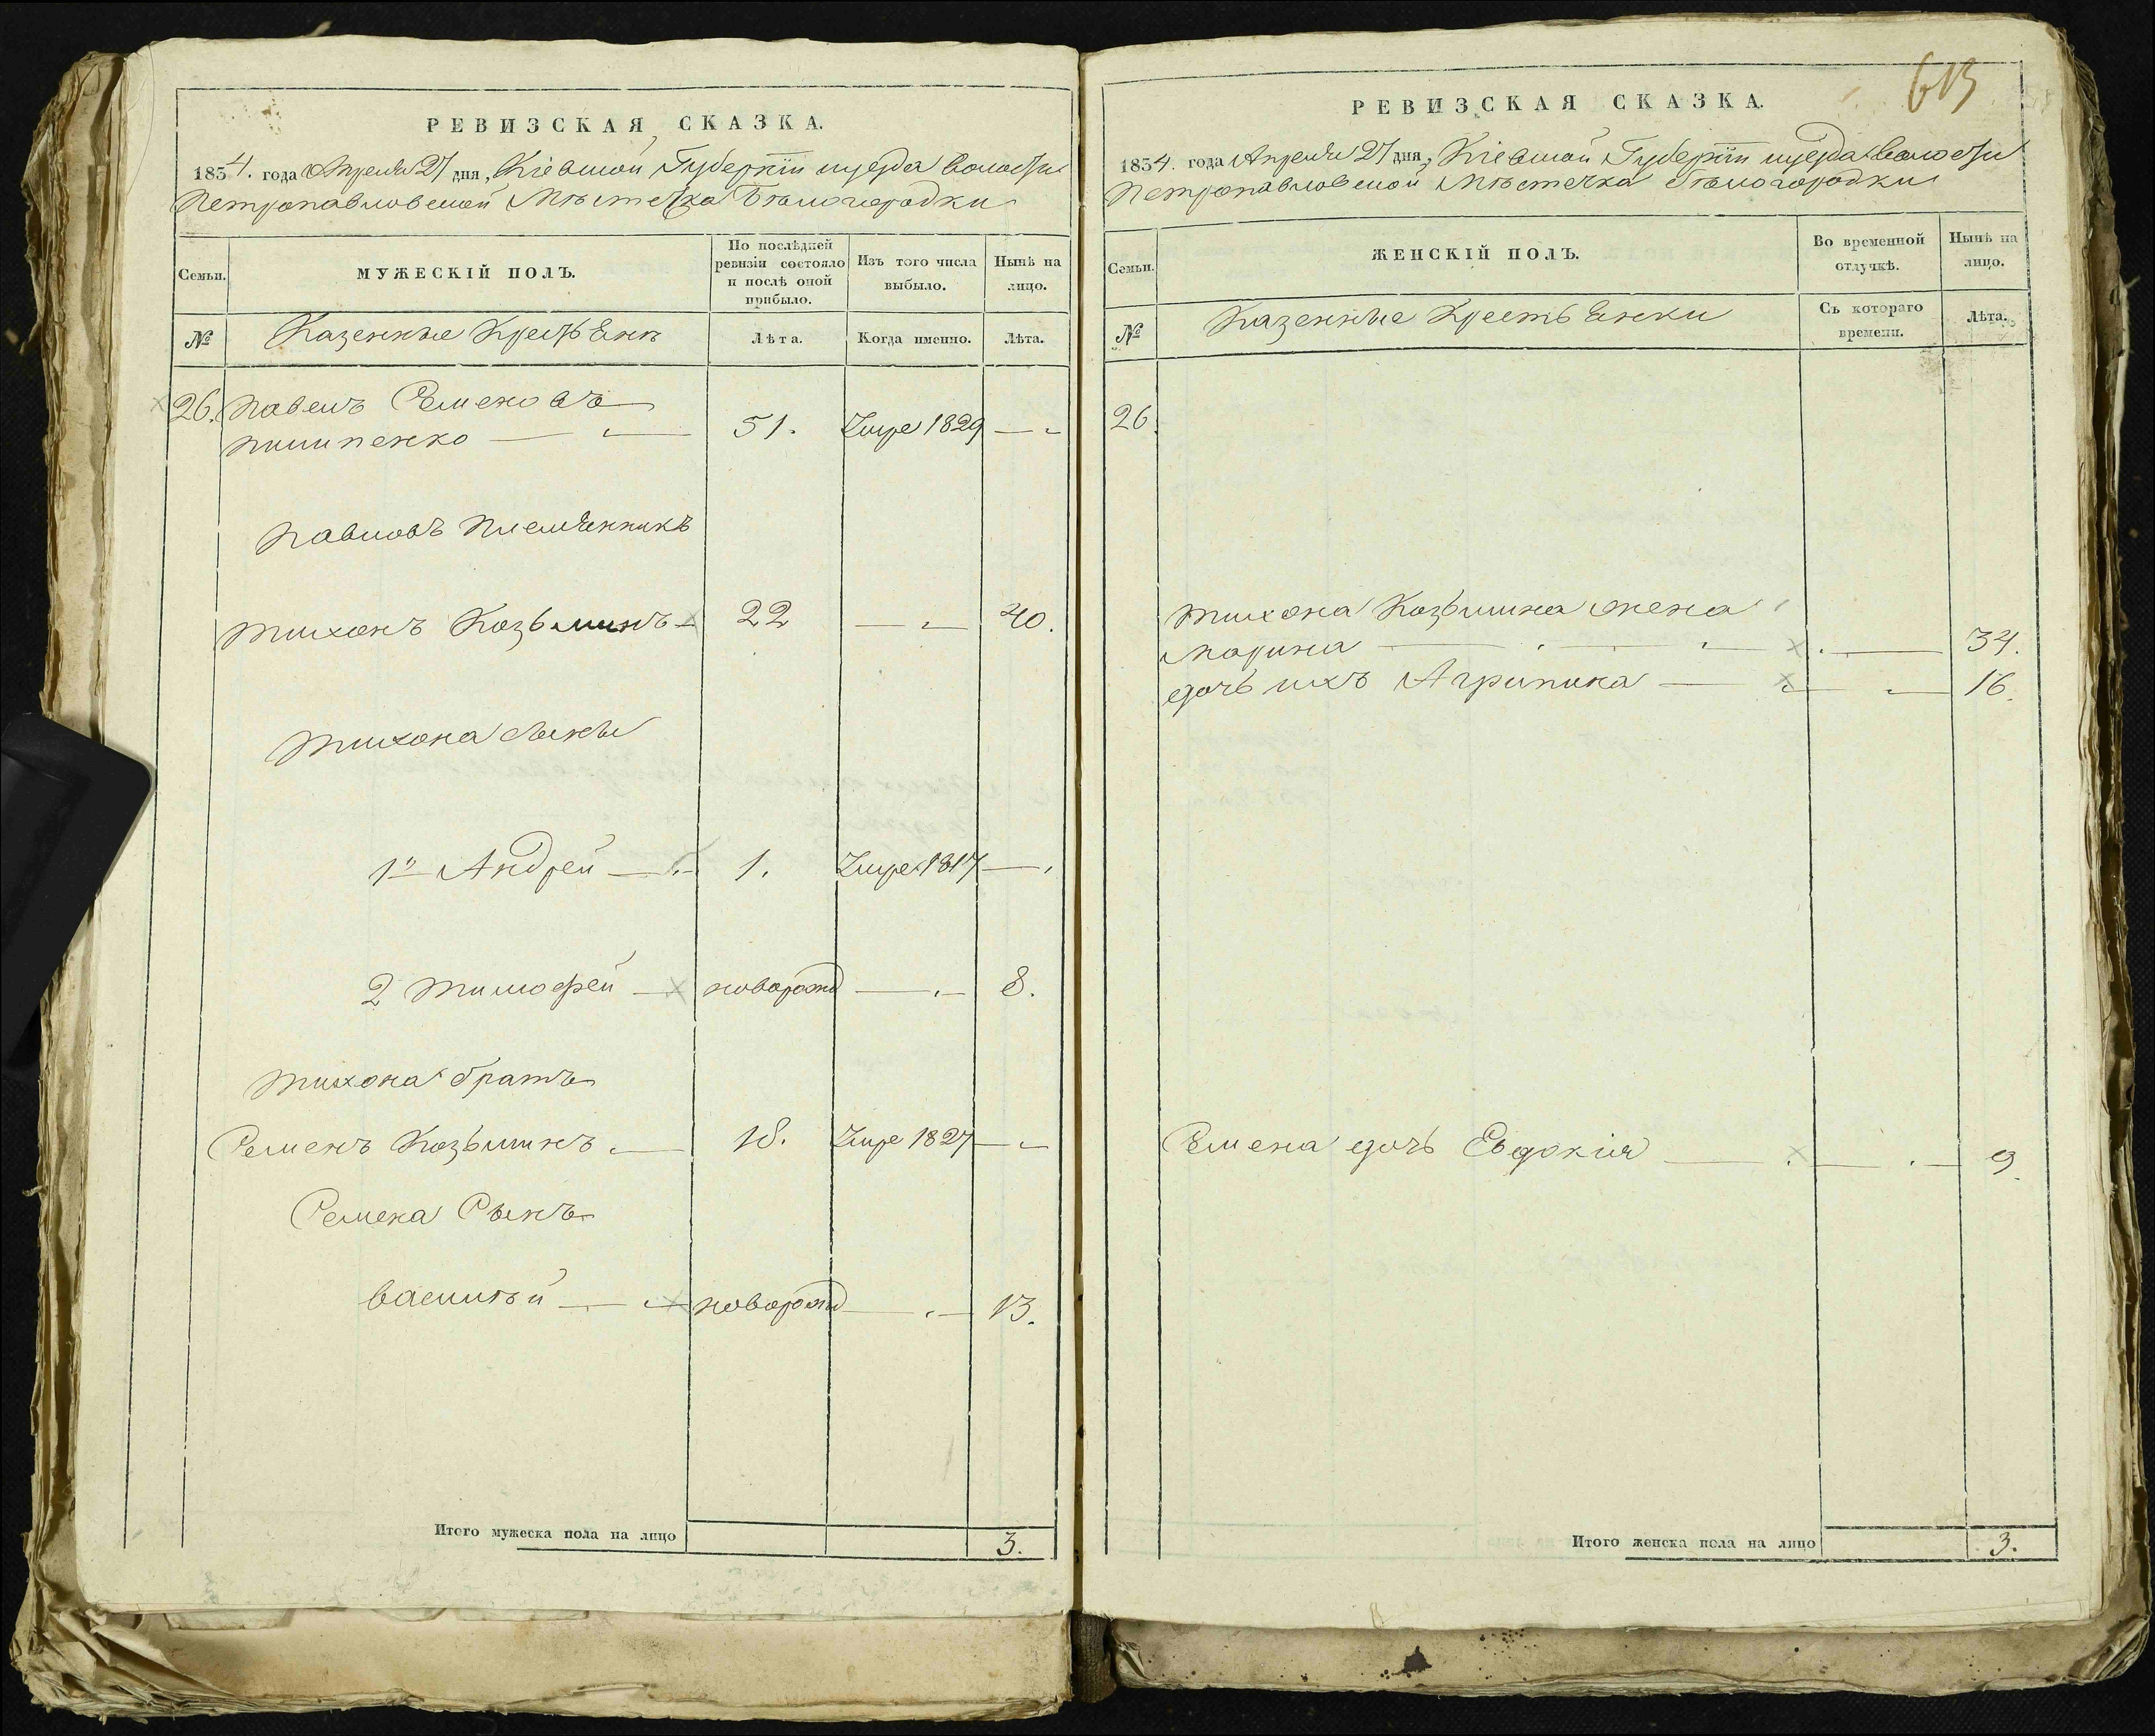 РЕВИЗСКАЯ СКАЗКА.
1834. года Апреля 27 дня, Кіевской Губерніи иуезда волости
Петропавловской Мѣстечка Бѣлогородки
Семьи. МУЖЕСКІЙ ПОЛЪ. По послѣдней ревизіи состояло и послѣ оной прибыло. Изъ того числа выбыло. Нынѣ на лицо.
№ Казенные Крестьяне Лѣта. Когда именно. Лѣта.
26. Павелъ Семеновъ
Пилипенко 51. Умре 1829
Павловъ Племянникъ
Тихонъ Козьминъ 22 40.
Тихона сыны
1й Андрей 1. Умре 1817
2 Тимофей новорожд 8.
Тихона братъ
Семенъ Козьминъ 18. Умре 1827
Семена Сынъ
Василій новорожд 13.
Итого мужеска пола на лицо 3.
613
РЕВИЗСКАЯ СКАЗКА.
1834. года Апреля 27 дня, Кіевской Губерніи иуезда волости
Петропавловской Мѣстечка Бѣлогородки
Семьи. ЖЕНСКІЙ ПОЛЪ. Во временной отлучкѣ. Нынѣ на лицо.
№ Казенные Крестьянки Съ котораго времени. Лѣта.
26.
Тихона Козьмина жена
Марина 34.
дочь ихъ Агрипина 16.
Семена дочь Евдокія 9.
Итого женска пола на лицо 3.